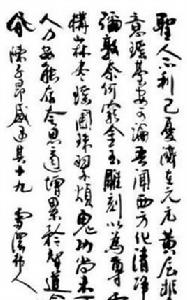 聖人不利己憂濟在元元黃屋非堯
意瑤臺安可論吾聞西方化清淨道
彌敦奈何窮金玉雕刻以為尊雲
構山林盡瑤圖珠翠煩鬼功尚未可
人力安能存夸愚適增累矜智道逾
昏 陳子昂感遇其十九